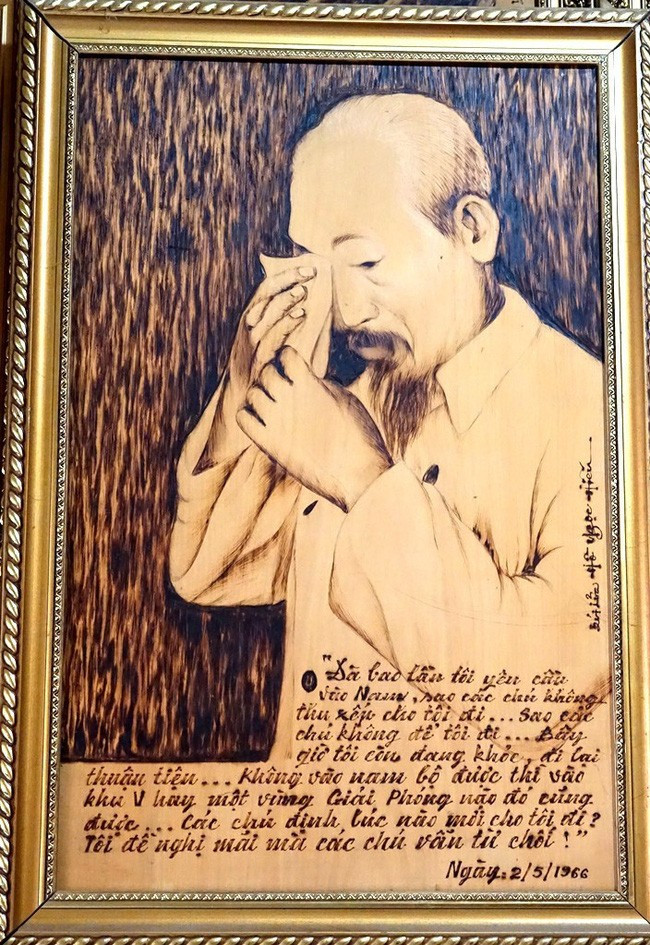 "Đã bao lần tôi yêu cầu
vào Nam, sao các chú không
thu xếp cho tôi đi... Sao các
chú không để tôi đi... Bây
giờ tôi còn đang khỏe, đi lại
thuận tiện... Không vào nam bộ được thì vào
khu V hay một vùng Giải Phóng nào đó cũng
được... Các chú định lúc nào mới cho tôi đi?
Tôi đề nghị mãi mà các chú vẫn từ chối!"
Ngày: 2/5/1966
Bút lửa Ngọc